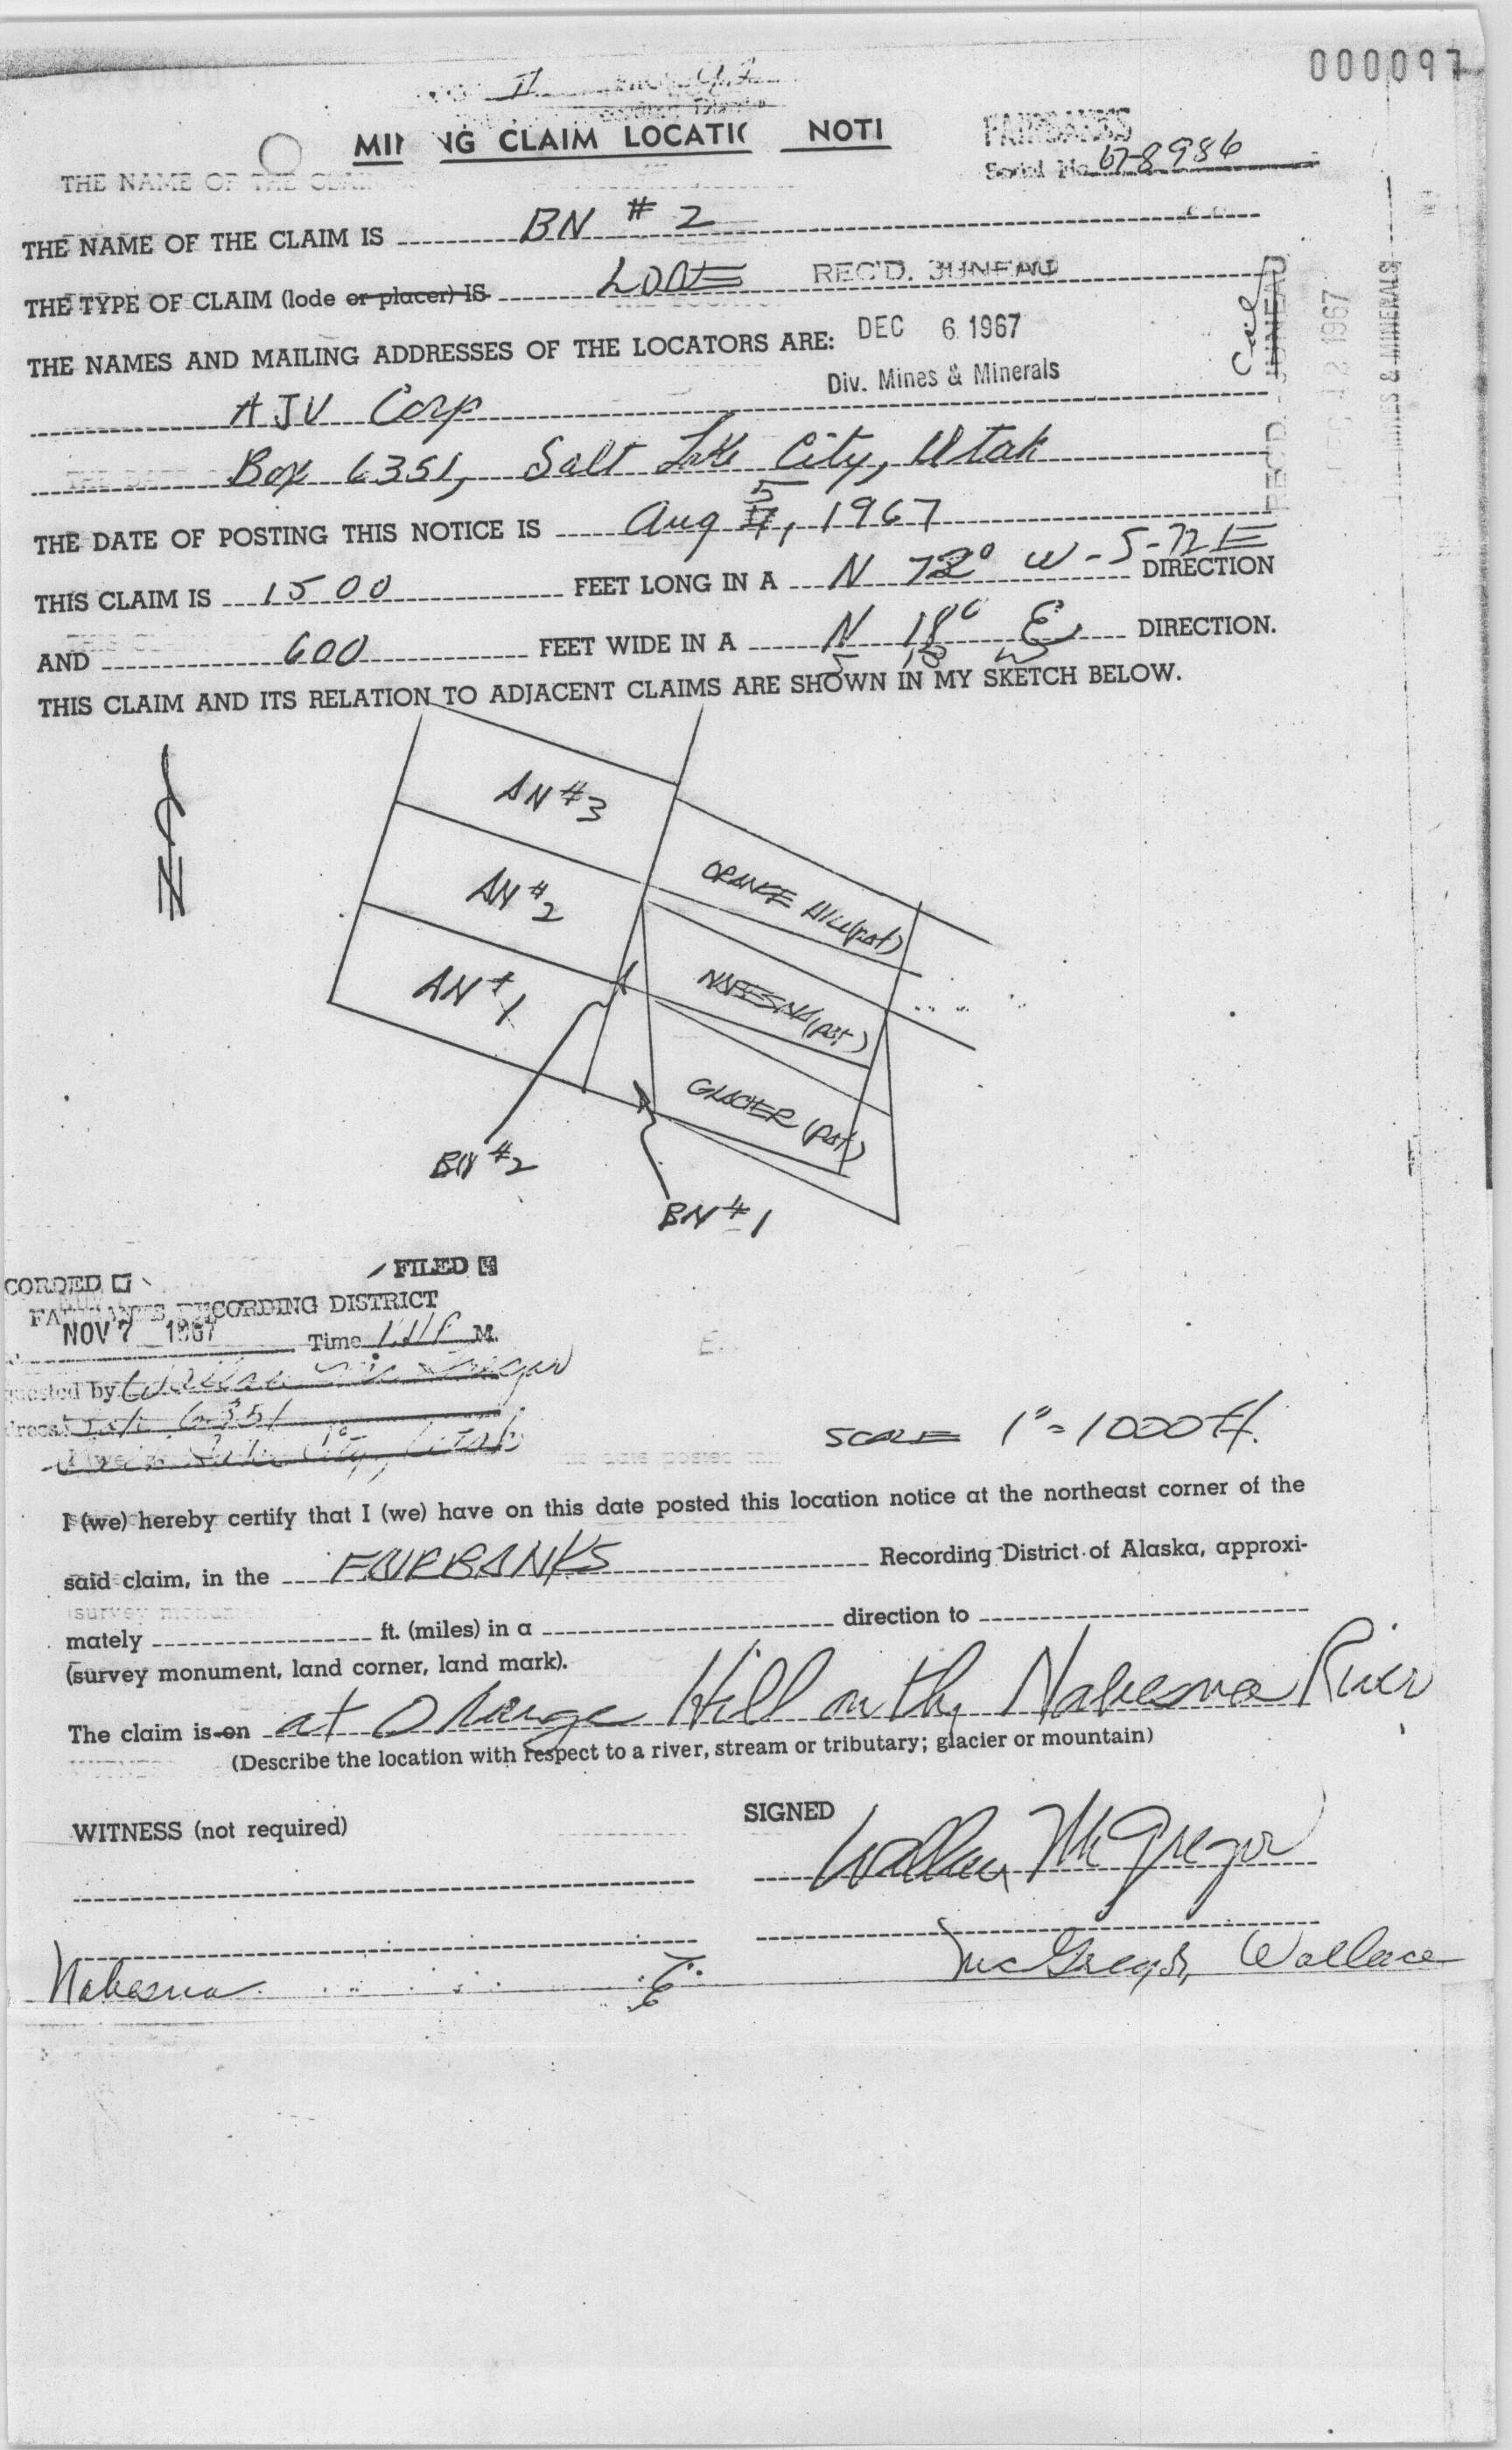 000097
II
MIN NG CLAIM LOCATIO NOTI
FAIRBANKS
Serial No. 67-8986
THE NAME OF THE CLAI
THE NAME OF THE CLAIM IS BN # 2
THE TYPE OF CLAIM (lode or placer) IS LODE
REC'D. JUNEAU
THE NAMES AND MAILING ADDRESSES OF THE LOCATORS ARE:
DEC 6 1967
Div. Mines & Minerals
REC'D. JUNEAU
12 1967
MINES & MINERALS
AJV Corp
Box 6351, Salt Lake City, Utah
THE DATE OF POSTING THIS NOTICE IS Aug 5, 1967
THIS CLAIM IS 1500 FEET LONG IN A N 72° W - S-72 E DIRECTION
AND 600 FEET WIDE IN A N 18° E DIRECTION.
S 18 W
THIS CLAIM AND ITS RELATION TO ADJACENT CLAIMS ARE SHOWN IN MY SKETCH BELOW.
N
AN #3
AN #2
AN #1
ORANGE HILL (pat)
NABESNA (pat)
GLACIER (pat)
BN #2
BN #1
CORDED
FILED
FAIRBANKS RECORDING DISTRICT
NOV 7 1967 Time M.
quested by Wallace McGregor
dress Box 6351
Salt Lake City, Utah
SCALE 1" = 1000 ft.
I (we) hereby certify that I (we) have on this date posted this location notice at the northeast corner of the
said claim, in the FAIRBANKS Recording District of Alaska, approxi-
mately ft. (miles) in a direction to
(survey monument, land corner, land mark).
The claim is on at Orange Hill on the Nabesna River
(Describe the location with respect to a river, stream or tributary; glacier or mountain)
WITNESS (not required)
SIGNED
Wallace McGregor
Nabesna
McGregor, Wallace